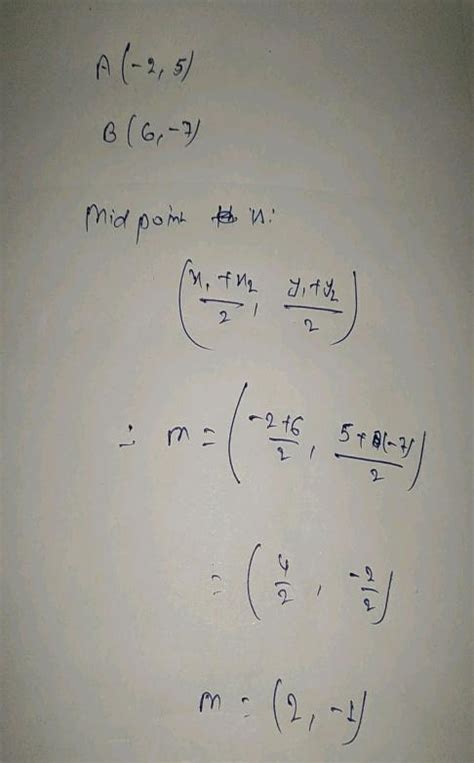 A(-2, 5)
B(6, -7)
Mid point is:
(x₁+x₂/2, y₁+y₂/2)
∴ m = (-2+6/2, 5+(-7)/2)
= (4/2, -2/2)
m = (2, -1)